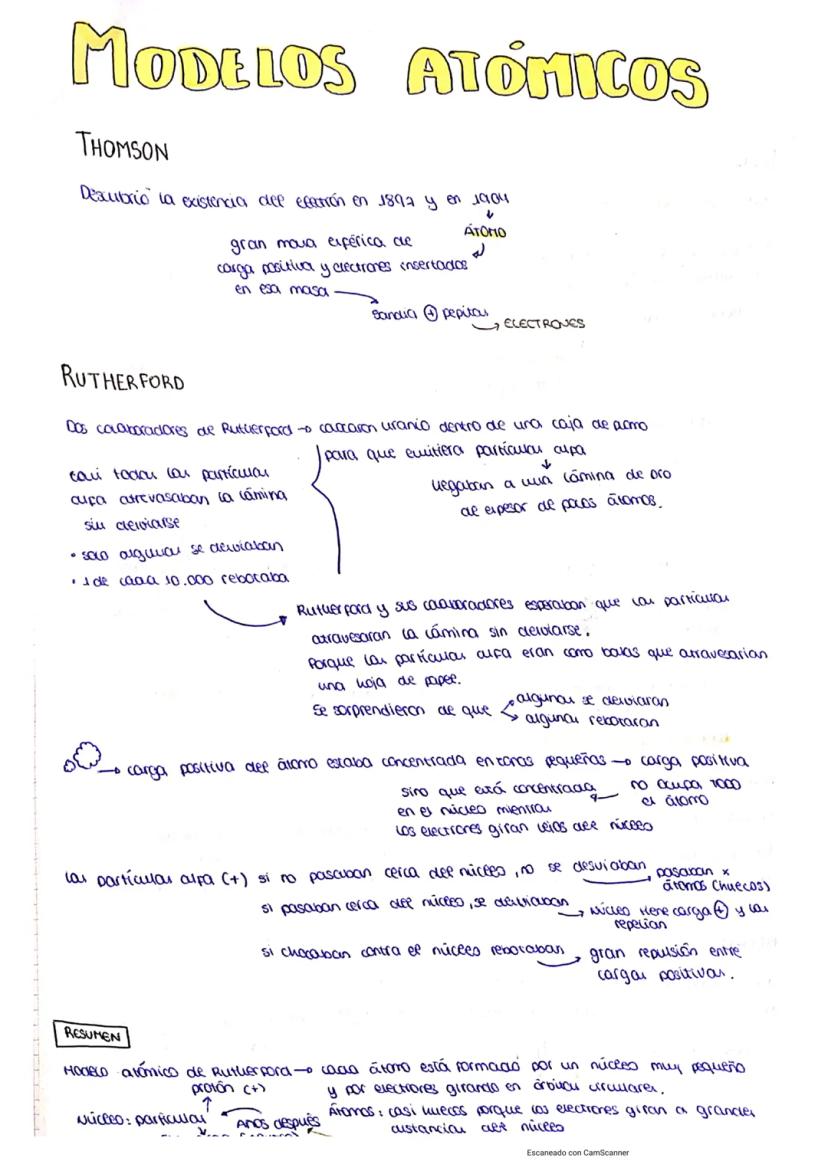 MODELOS ATÓMICOS
THOMSON
Descubrió la existencia del electrón en 1897 y en 1904
ÁTOMO
gran masa esférica de
carga positiva y electrones insertados
en esa masa
sandía + pepitas
ELECTRONES
RUTHERFORD
Dos colaboradores de Rutherford → colocaron uranio dentro de una caja de plomo
para que emitiera partículas alfa
llegaban a una lámina de oro
de espesor de pocos átomos.
casi todas las partículas
alfa atrevasaban la lámina
sin desviarse
• solo algunas se desviaban
• 1 de cada 10.000 rebotaba
Rutherford y sus colaboradores esperaban que las partículas
atravesaran la lámina sin desviarse.
Porque las partículas alfa eran como balas que atravesarían
una hoja de papel.
Se sorprendieron de que
algunas se desviaran
algunas rebotaran
→ carga positiva del átomo estaba concentrada en zonas pequeñas → carga positiva
no ocupa todo
el átomo
sino que está concentrada
en el núcleo mientras
los electrones giran lejos del núcleo
las partículas alfa (+) si no pasaban cerca del núcleo, no se desviaban
pasaban x
átomos (huecos)
si pasaban cerca del núcleo, se desviaban
núcleo tiene carga + y las
repelían
si chocaban contra el núcleo rebotaban
gran repulsión entre
cargas positivas.
RESUMEN
Modelo atómico de Rutherford → cada átomo está formado por un núcleo muy pequeño
y por electrones girando en órbitas circulares.
protón (+)
Núcleo: partículas
Años después
Átomos: casi huecos porque los electrones giran a grandes
distancias del núcleo
Escaneado con CamScanner